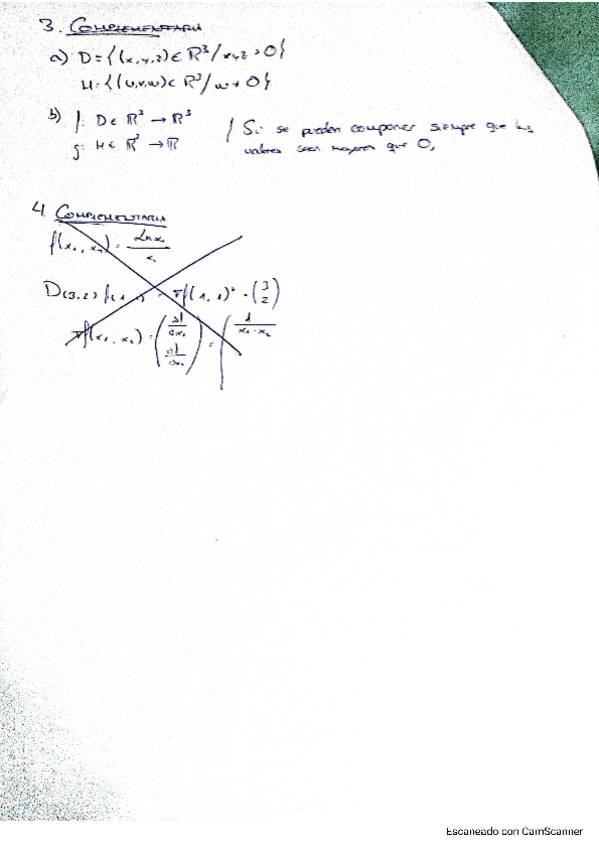 3. COMPLEMENTARIA
a) D = {(x,y,z) ∈ R³ / x,y,z > 0}
H = {(u,v,w) ∈ R³ / w ≠ 0}
b) f: D ∈ R³ → R³ / Si se pueden componer siempre que los
g: H ∈ R³ → R valores sean mayores que 0,
4. COMPLEMENTARIA
f(x₁, x₂) = Ln x₂ / x₁
D(3,2) f(1,1) = ∇f(1,1)ᵗ · (3 2)
∇f(x₁, x₂) = (∂f/∂x₁ ∂f/∂x₂) = ( 1 / x₁·x₂
Escaneado con CamScanner